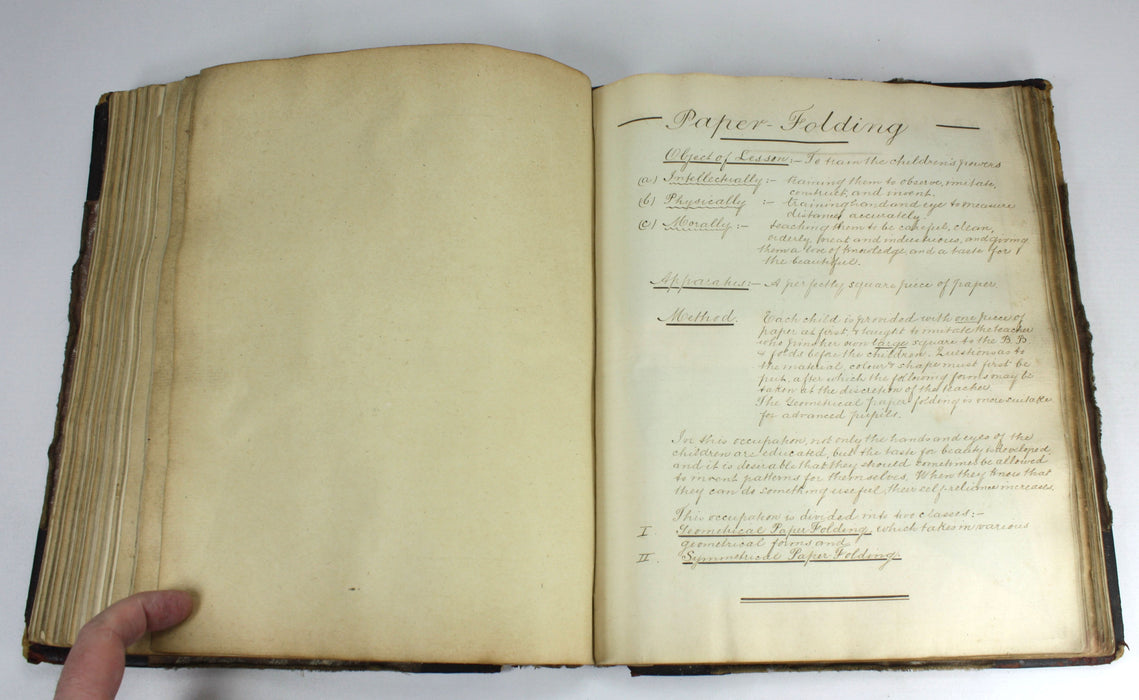 Paper-Folding
Object of Lesson:- To train the children's powers
(a) Intellectually:- training them to observe, imitate,
construct, and invent.
(b) Physically :- training hand and eye to measure
distance accurately.
(c) Morally:- teaching them to be careful, clean,
orderly, neat and industrious, and giving
them a love of knowledge, and a taste for
the beautiful.
Apparatus:- A perfectly square piece of paper.
Method. Each child is provided with one piece of
paper at first, & taught to imitate the teacher
who pins her own large square to the B.B
& folds before the children. Questions as to
the material, colour & shape must first be
put, after which the following forms may be
taken at the discretion of the teacher.
The Geometrical paper-folding is more suitable
for advanced pupils.
In this occupation, not only the hands and eyes of the
children are educated, but the taste for beauty is developed,
and it is desirable that they should sometimes be allowed
to invent patterns for themselves. When they know that
they can do something useful, their self-reliance increases.
This occupation is divided into two classes:-
I. Geometrical Paper Folding, which takes in various
geometrical forms and
II. Symmetrical Paper-Folding.